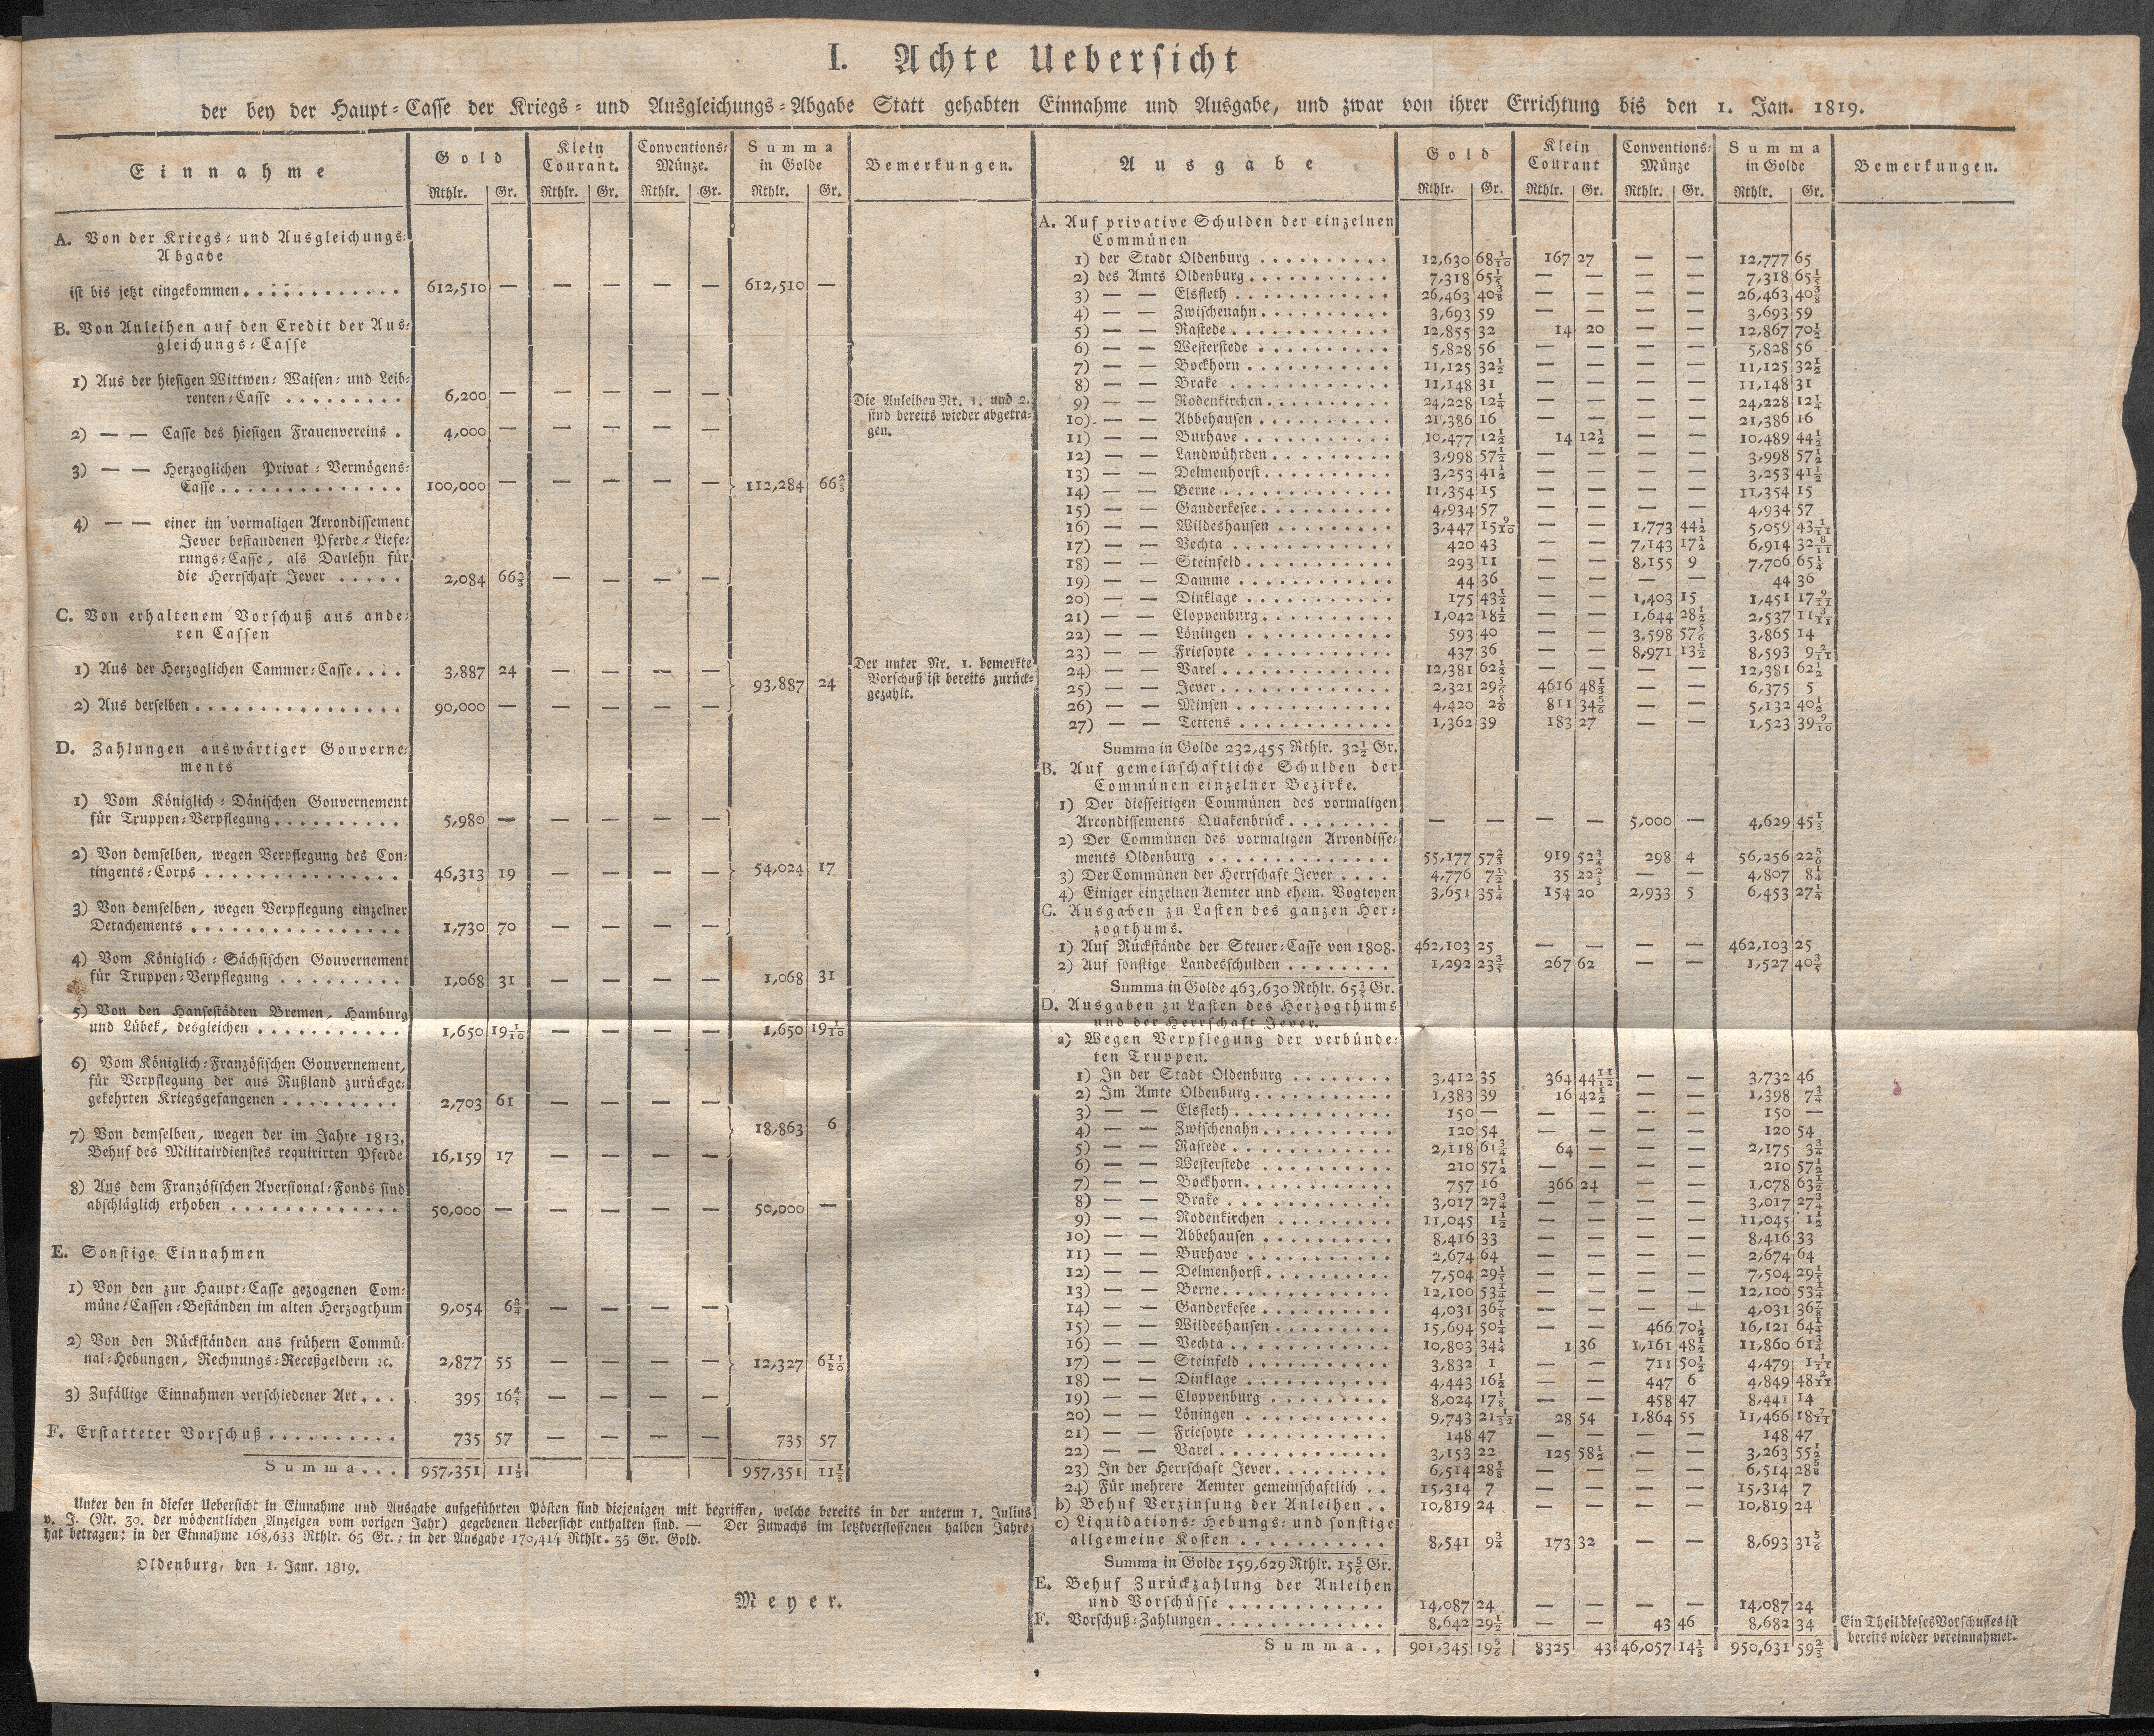 I. Achte Uebersicht
der bey der Haupt-Casse der Kriegs- und Ausgleichungs-Abgabe Statt gehabten Einnahme und Ausgabe, und zwar von ihrer Errichtung bis den 1. Jan. 1819.
Einnahme | Gold | Klein Courant. | Conventions-Münze. | Summa in Golde | Bemerkungen.
Rthlr. Gr. Rthlr. Gr. Rthlr. Gr. Rthlr. Gr.
A. Von der Kriegs- und Ausgleichungs-
Abgabe
ist bis jetzt eingekommen. 612,510 — — — — — 612,510 —
B. Von Anleihen auf den Credit der Aus-
gleichungs-Casse
1) Aus der hiesigen Wittwen- Waisen- und Leib-
renten-Casse 6,200 — — — — —
Die Anleihen Nr. 1. und 2.
sind bereits wieder abgetra-
gen.
2) — — Casse des hiesigen Frauenvereins . 4,000 — — — — —
3) — — Herzoglichen Privat-Vermögens-
Casse 100,000 — — — — — 112,284 66⅔
4) — — einer im vormaligen Arrondissement
Jever bestandenen Pferde-Liefe-
rungs-Casse, als Darlehn für
die Herrschaft Jever 2,084 66⅔ — — — —
C. Von erhaltenem Vorschuß aus ande-
ren Cassen
1) Aus der Herzoglichen Cammer-Casse 3,887 24 — — — — 93,887 24
Der unter Nr. 1. bemerkte
Vorschuß ist bereits zurück-
gezahlt.
2) Aus derselben 90,000 — — — — —
D. Zahlungen auswärtiger Gouverne-
ments
1) Vom Königlich-Dänischen Gouvernement
für Truppen-Verpflegung 5,980 — — — — —
2) Von demselben, wegen Verpflegung des Con-
tingents-Corps 46,313 19 — — — — 54,024 17
3) Von demselben, wegen Verpflegung einzelner
Detachements 1,730 70 — — — —
4) Vom Königlich-Sächsischen Gouvernement
für Truppen-Verpflegung 1,068 31 — — — — 1,068 31
5) Von den Hansestädten Bremen, Hamburg
und Lübek, desgleichen 1,650 19 1/10 — — — — 1,650 19 1/10
6) Vom Königlich-Französischen Gouvernement,
für Verpflegung der aus Rußland zurückge-
gekehrten Kriegsgefangenen 2,703 61 — — — —
18,863 6
7) Von demselben, wegen der im Jahre 1813,
Behuf des Militairdienstes requirirten Pferde 16,159 17 — — — —
8) Aus dem Französischen Aversional-Fonds sind
abschläglich erhoben 50,000 — — — — — 50,000 —
E. Sonstige Einnahmen
1) Von den zur Haupt-Casse gezogenen Com-
müne-Cassen-Beständen im alten Herzogthum 9,054 6¾ — — — —
2) Von den Rückständen aus frühern Commü-
nal-Hebungen, Rechnungs-Receßgeldern ꝛc. 2,877 55 — — — — 12,327
3) Zufällige Einnahmen verschiedener Art 395 16⅘ — — — —
F. Erstatteter Vorschuß 735 57 — — — — 735 57
Summa... 957,351 11⅓ 957,351 11⅓
Unter den in dieser Uebersicht in Einnahme und Ausgabe aufgeführten Pösten sind diejenigen mit begriffen, welche bereits in der unterm 1. Julius
v. J. (Nr. 30. der wöchentlichen Anzeigen vom vorigen Jahr) gegebenen Uebersicht enthalten sind. — Der Zuwachs im letztverflossenen halben Jahre
hat betragen: in der Einnahme 168,633 Rthlr. 65 Gr.: in der Ausgabe 170,414 Rthlr. 35 Gr. Gold.
Oldenburg, den 1. Janr. 1819.
Meyer.
Ausgabe | Gold | Klein Courant | Conventions-Münze | Summa in Golde | Bemerkungen.
Rthlr. Gr. Rthlr. Gr. Rthlr. Gr. Rthlr. Gr.
A. Auf privative Schulden der einzelnen
Commünen
1) der Stadt Oldenburg 12,630 68 1/10 167 27 — — 12,777 65
2) des Amts Oldenburg 7,318 65⅕ — — — — 7,318 65⅕
3) — — Elsfleth 26,463 40⅜ — — — — 26,463 40⅜
4) — — Zwischenahn 3,693 59 — — — — 3,693 59
5) — — Rastede 12,855 32 14 20 — — 12,867 70½
6) — — Westerstede 5,828 56 — — — — 5,828 56
7) — — Bockhorn 11,125 32½ — — — — 11,125 32½
8) — — Brake 11,148 31 — — — — 11,148 31
9) — — Rodenkirchen 24,228 12¼ — — — — 24,228 12¼
10) — — Abbehausen 21,386 16 — — — — 21,386 16
11) — — Burhave 10,477 12½ 14 12½ — — 10,489 44½
12) — — Landwührden 3,998 57½ — — — — 3,998 57½
13) — — Delmenhorst 3,253 41½ — — — — 3,253 41½
14) — — Berne 11,354 15 — — — — 11,354 15
15) — — Ganderkesee 4,934 57 — — — — 4,934 57
16) — — Wildeshausen 3,447 15 9/10 — — 1,773 44½ 5,059 43 1/11
17) — — Vechta 420 43 — — 7,143 17½ 6,914 32 8/11
18) — — Steinfeld 293 11 — — 8,155 9 7,706 65¼
19) — — Damme 44 36 — — — — 44 36
20) — — Dinklage 175 43½ — — 1,403 15 1,451 17 9/11
21) — — Cloppenburg 1,042 18½ — — 1,644 28½ 2,537 11 3/11
22) — — Löningen 593 40 — — 3,598 57⅚ 3,865 14
23) — — Friesoyte 437 36 — — 8,971 13½ 8,593 9 2/11
24) — — Varel 12,381 62½ — — — — 12,381 62½
25) — — Jever 2,321 29⅚ 4616 48⅓ — — 6,375 5
26) — — Minsen 4,420 2⅚ 811 34⅚ — — 5,132 40½
27) — — Tettens 1,362 39 183 27 — — 1,523 39 9/10
Summa in Golde 232,455 Rthlr. 32½ Gr.
B. Auf gemeinschaftliche Schulden der
Commünen einzelner Bezirke.
1) Der diesseitigen Commünen des vormaligen
Arrondissements Quakenbrück — — — — 5,000 — 4,629 45⅓
2) Der Commünen des vormaligen Arrondisse-
ments Oldenburg 55,177 57⅔ 919 52¾ 298 4 56,256 22⅚
3) Der Commünen der Herrschaft Jever 4,776 7½ 35 22⅔ — — 4,807 8¼
4) Einiger einzelnen Aemter und ehem. Vogteyen 3,651 35¼ 154 20 2,933 5 6,453 27¼
C. Ausgaben zu Lasten des ganzen Her-
zogthums.
1) Auf Rückstände der Steuer-Casse von 1808. 462,103 25 — — — — 462,103 25
2) Auf sonstige Landesschulden 1,292 23⅗ 267 62 — — 1,527 40⅗
Summa in Golde 463,630 Rthlr. 65⅗ Gr.
D. Ausgaben zu Lasten des Herzogthums
und der Herrschaft Jever.
a) Wegen Verpflegung der verbünde-
ten Truppen.
1) In der Stadt Oldenburg 3,412 35 364 44 11/12 — — 3,732 46
2) Im Amte Oldenburg 1,383 39 16 42½ — — 1,398 7¾
3) — — Elsfleth 150 — — — — — 150 —
4) — — Zwischenahn 120 54 — — — — 120 54
5) — — Rastede 2,118 61¾ 64 — — — 2,175 3¾
6) — — Westerstede 210 57½ — — — — 210 57½
7) — — Bockhorn 757 16 366 24 — — 1,078 63½
8) — — Brake 3,017 27¾ — — — — 3,017 27¾
9) — — Rodenkirchen 11,045 1½ — — — — 11,045 1½
10) — — Abbehausen 8,416 33 — — — — 8,416 33
11) — — Burhave 2,674 64 — — — — 2,674 64
12) — — Delmenhorst 7,504 29⅕ — — — — 7,504 29⅕
13) — — Berne 12,100 53¼ — — — — 12,100 53¼
14) — — Ganderkesee 4,031 36⅞ — — — — 4,031 36⅞
15) — — Wildeshausen 15,694 50¼ — — 466 70½ 16,121 64¼
16) — — Vechta 10,803 34¼ 1 36 1,161 48½ 11,860 61¾
17) — — Steinfeld 3,832 1 — — 711 50½ 4,479 1 1/11
18) — — Dinklage 4,443 16½ — — 447 6 4,849 48 2/11
19) — — Cloppenburg 8,024 17⅛ — — 458 47 8,441 14
20) — — Löningen 9,743 28 54 1,864 55 11,466 18 7/11
21) — — Friesoyte 148 47 — — — — 148 47
22) — — Varel 3,153 22 125 58½ — — 3,263 55½
23) In der Herrschaft Jever 6,514 28⅝ — — — — 6,514 28⅝
24) Für mehrere Aemter gemeinschaftlich 15,314 7 — — — — 15,314 7
b) Behuf Verzinsung der Anleihen 10,819 24 — — — — 10,819 24
c) Liquidations-Hebungs- und sonstige
allgemeine Kosten 8,541 9¾ 173 32 — — 8,693 31⅚
Summa in Golde 159,629 Rthlr. 15⅚ Gr.
E. Behuf Zurückzahlung der Anleihen
und Vorschüsse 14,087 24 — — — — 14,087 24
F. Vorschuß-Zahlungen 8,642 29½ — — 43 46 8,682 34
Ein Theil dieses Vorschusses ist
bereits wieder vereinnahmet.
Summa.. 901,345 19⅚ 8325 43 46,057 14⅓ 950,631 59⅔